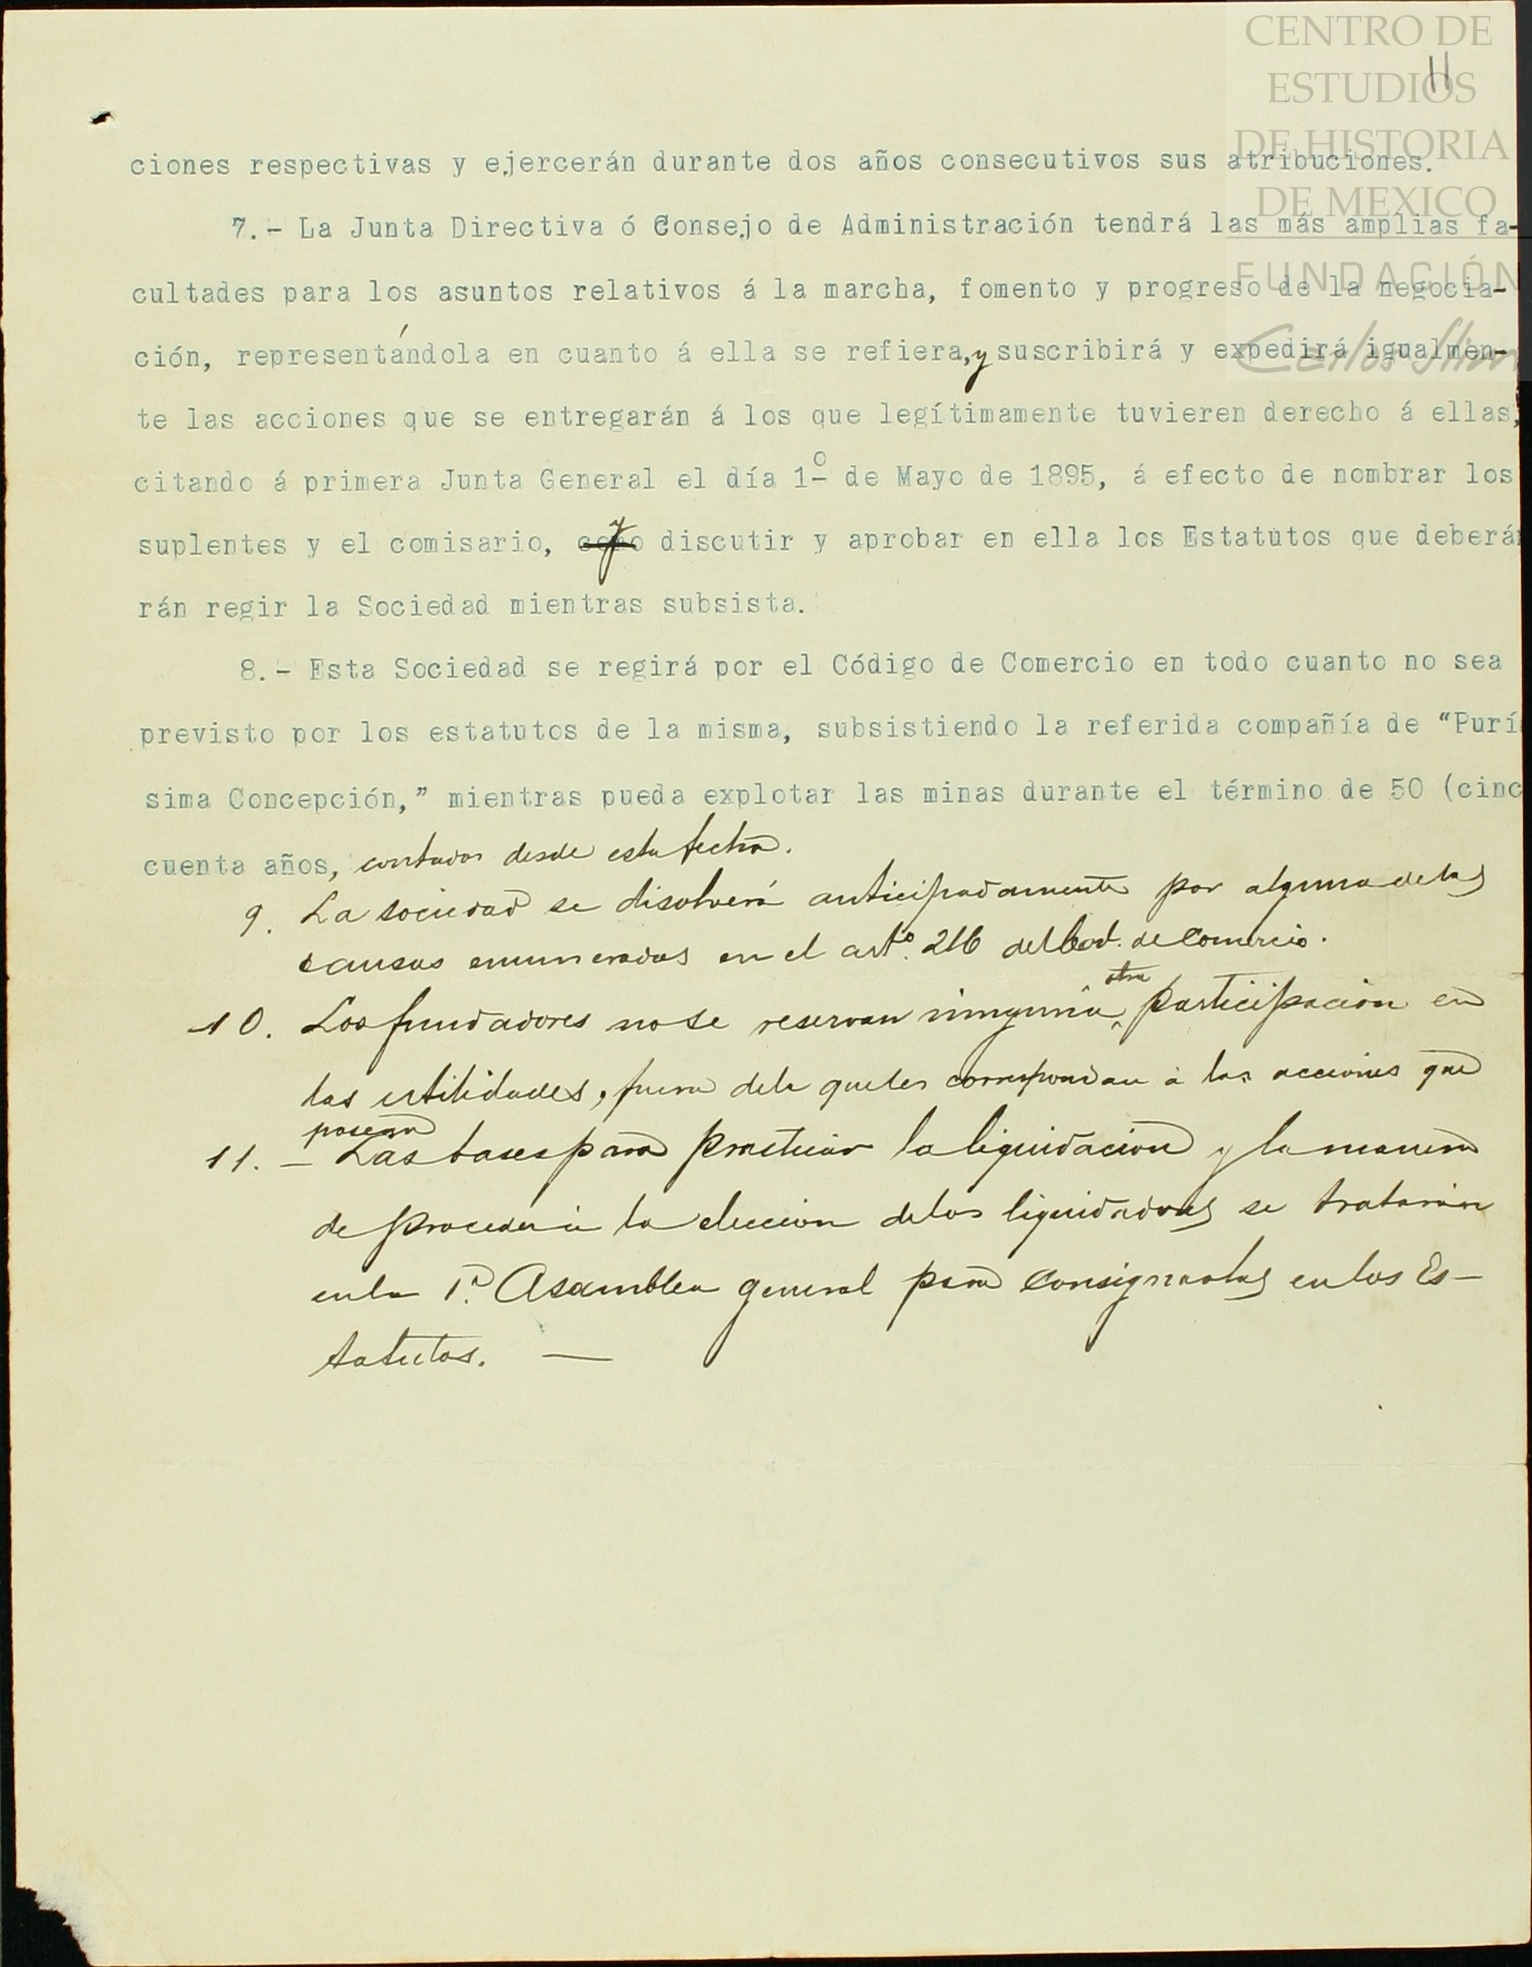 CENTRO DE
ESTUDIOS
DE HISTORIA
DE MEXICO
FUNDACIÓN
Carlos Slim
11
ciones respectivas y ejercerán durante dos años consecutivos sus atribuciones.
7.- La Junta Directiva ó Consejo de Administración tendrá las más amplias fa-
cultades para los asuntos relativos á la marcha, fomento y progreso de la negocia-
ción, representándola en cuanto á ella se refiera, y suscribirá y expedirá igualmen-
te las acciones que se entregarán á los que legítimamente tuvieren derecho á ellas,
citando á primera Junta General el día 1º de Mayo de 1895, á efecto de nombrar los
suplentes y el comisario, y discutir y aprobar en ella los Estatutos que deberán
rán regir la Sociedad mientras subsista.
8.- Esta Sociedad se regirá por el Código de Comercio en todo cuanto no sea
previsto por los estatutos de la misma, subsistiendo la referida compañía de “Purí
sima Concepción,” mientras pueda explotar las minas durante el término de 50 (cinc
cuenta años, contados desde esta fecha.
9. La sociedad se disolverá anticipadamente por alguna de las
causas enumeradas en el artº. 216 del Cod. de Comercio.
10. Los fundadores no se reservan ninguna otra participación en
las utilidades, fuera de la que les correspondan á las acciones que
posean
11. – Las bases para practicar la liquidación y la manera
de proceder á la elección de los liquidadores se tratarán
en la 1ª. Asamblea general para consignarlas en los Es–
tatutos. —